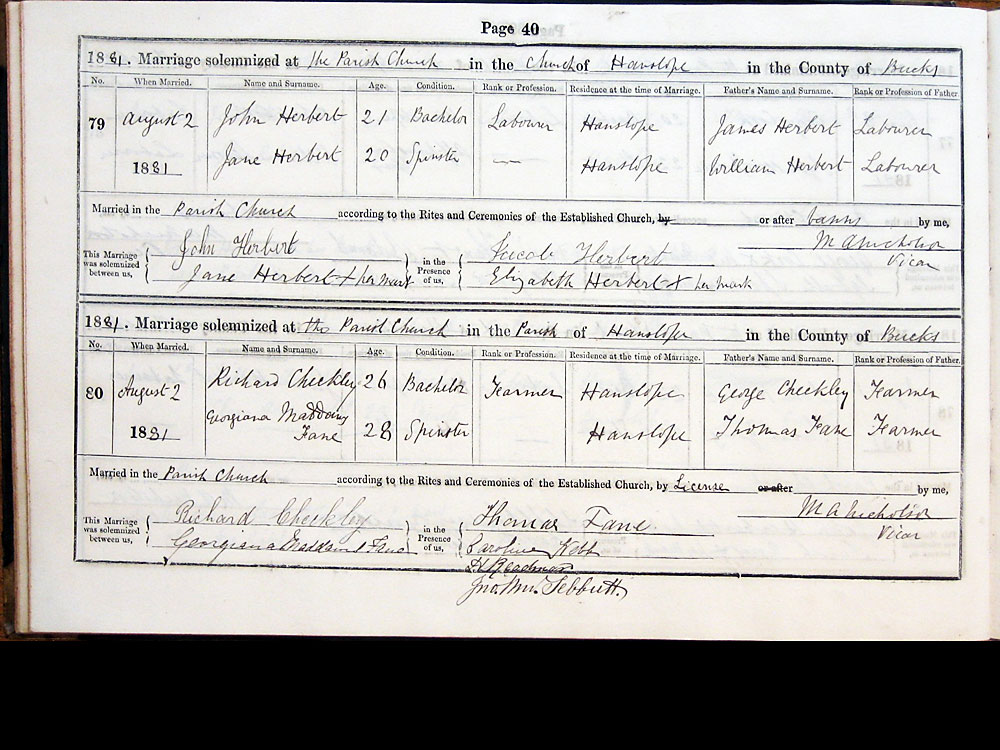 Page 40
1881. Marriage solemnized at the Parish Church in the Church of Hanslope in the County of Bucks
No. When Married. Name and Surname. Age. Condition. Rank or Profession. Residence at the time of Marriage. Father's Name and Surname. Rank or Profession of Father.
79 August 2 John Herbert 21 Bachelor Labourer Hanslope James Herbert Labourer
1881 Jane Herbert 20 Spinster — Hanslope William Herbert Labourer
Married in the Parish Church according to the Rites and Ceremonies of the Established Church, by or after banns by me,
M A Nicholson
Vicar
This Marriage was solemnized between us,
John Herbert
Jane Herbert X her mark
in the Presence of us,
Jacob Herbert
Elizabeth Herbert X her mark
1881. Marriage solemnized at the Parish Church in the Parish of Hanslope in the County of Bucks
No. When Married. Name and Surname. Age. Condition. Rank or Profession. Residence at the time of Marriage. Father's Name and Surname. Rank or Profession of Father.
80 August 2 Richard Checkley 26 Bachelor Farmer Hanslope George Checkley Farmer
1881 Georgiana Fane 28 Spinster Hanslope Thomas Fane Farmer
Married in the Parish Church according to the Rites and Ceremonies of the Established Church, by License or after by me,
M A Nicholson
Vicar
This Marriage was solemnized between us,
Richard Checkley
Georgiana Fane
in the Presence of us,
Thomas Fane
Caroline
Jno. Wm. Tebbutt